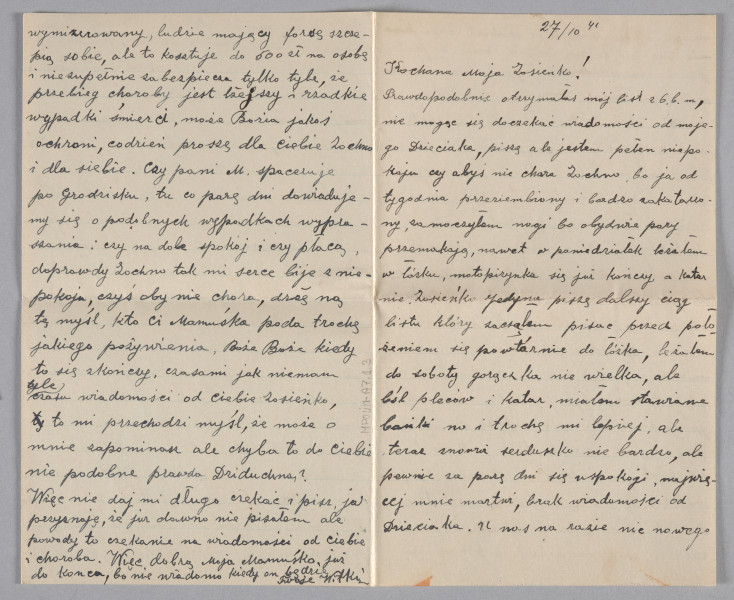 27/10 41
Kochana Moja Zosieńko!
Prawdopodobnie otrzymałaś mój list z 6.b.m,
nie mogąc się doczekać wiadomości od moje-
go Dzieciaka, piszę ale jestem pełen niepo-
koju czy abyś nie chora Zochno, bo ja od
tygodnia przeziembiony i bardzo zakatarzo-
ny, zamoczyłem nogi bo obydwie pary
przemakają, nawet w poniedziałek leżałem
w łósku, motopirynka się już kończy a katar
nie. Zosieńko jedyna piszę dalszy ciąg
listu który zaczęłem pisać przed poło
żeniem się powtórnie do łóżka, leżałem
do soboty gorączka nie wielka, ale
ból pleców i katar, miałem stawiane
bańki no i trochę mi lepiej, ale
teraz znowu serduszko nie bardzo, ale
pewnie za parę dni się uspokoji, najwię-
cej mnie martwi, brak wiadomości od
Dzieciaka. U nas na razie nic nowego
wymizerowany, ludzie mający forsę szcze-
pią sobie, ale to kosztuje do 600 zł na osobę
i niezupełnie zabezpiecza tylko tyle, że
przebieg choroby jest lżejszy i rzadkie
wypadki śmierci, może Bozia jakoś
ochroni, codzień proszę dla Ciebie Zochno
i dla siebie. Czy pani M. spaceruje
po Grodzisku, tu co parę dni dowiaduje-
my się o podobnych wypadkach wypra-
szania i czy na dole spokój i czy płacą,
doprawdy Zochno tak mi serce bije z nie-
pokoju, czyś oby nie chora, drżę na
tę myśl, kto Ci Mamuśka poda trochę
jakiego pożywienia, Boże Boże kiedy
to się skończy, czasami jak niemam
tyle
czasu wiadomości od Ciebie Zosieńko,
to mi przechodzi myśl, że może o
mnie zapominasz ale chyba to do Ciebie
nie podobne prawda Dziduchna?
Więc nie daj mi długo czekać i pisz, ja
przyznaję, że już dawno nie pisałem ale
powody to czekanie na wiadomości od Ciebie
i choroba. Więc dobra Moja Mamuśko, już
do końca, bo nie wiadomo kiedy on będzie